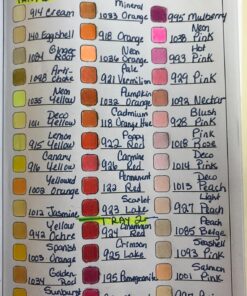 TRAY 1
914 Cream
140 Eggshell
1084 Ginger Root
1098 Artichoke
1035 Neon Yellow
1011 Deco Yellow
915 Lemon Yellow
916 Canary Yellow
1002 Yellowed Orange
1012 Jasmine
942 Yellow Ochre
1003 Spanish Orange
1034 Golden Rod
Sunburst
Mineral
1033 Orange
918 Orange
1036 Neon Orange
921 Pale Vermilion
1032 Pumpkin Orange
118 Cadmium Orange Hue
922 Poppy Red
926 Carmine Red
122 Permanent Red
923 Scarlet Lake
TRAY 2
924 Crimson Red
925 Crimson Lake
195 Pomegranate
995 Mulberry
1038 Neon Pink
993 Hot Pink
929 Pink
1092 Nectar
928 Blush Pink
1018 Pink Rose
1014 Deco Pink
1013 Deco Peach
927 Light Peach
1085 Peach Beige
1093 Seashell Pink
1001 Salmon Pink